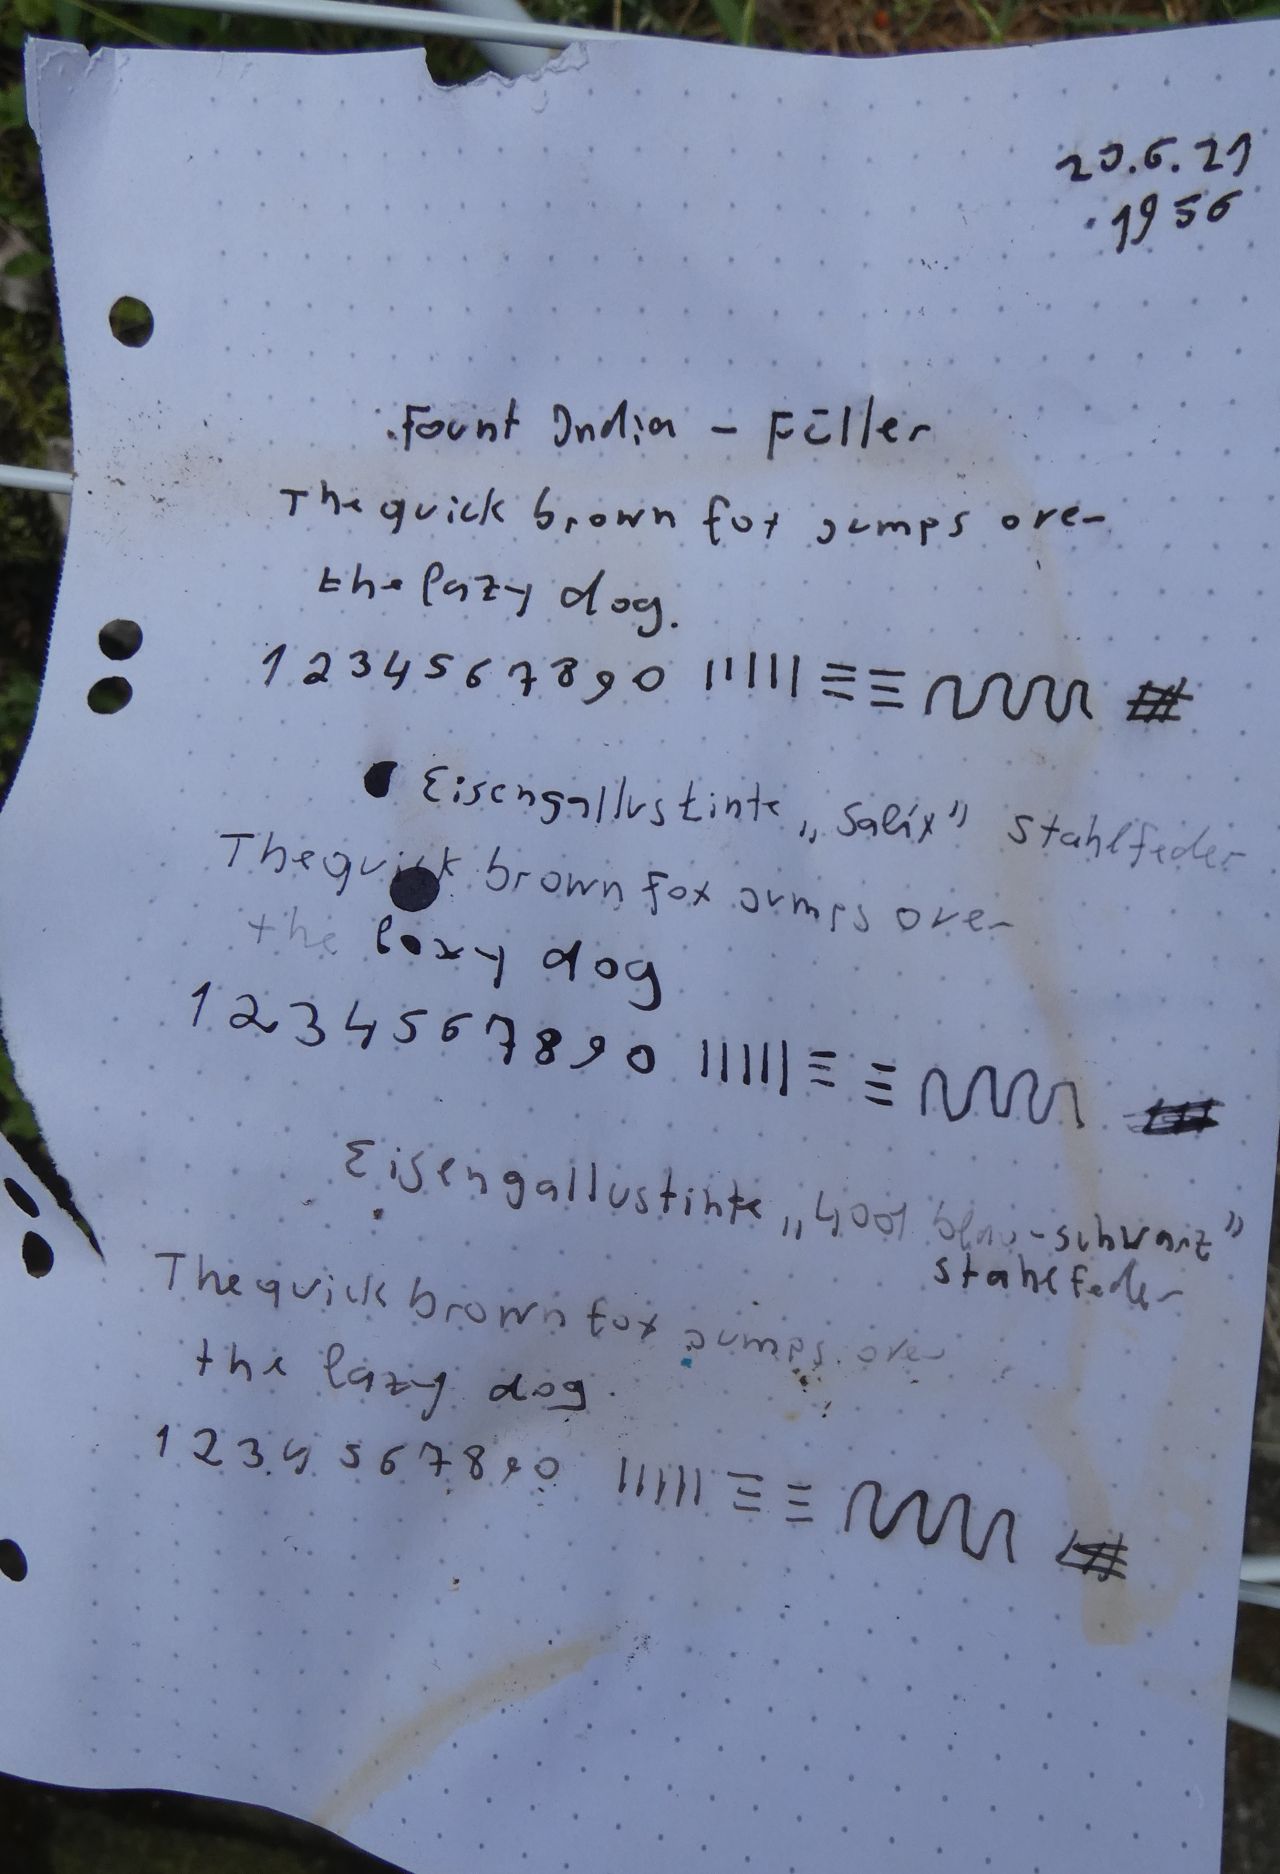 20.6.21
1956
Fount India - Füller
The quick brown fox jumps over
the lazy dog.
1234567890
Eisengallustinte „Salix" Stahlfeder
The quick brown fox jumps over
the lazy dog
1234567890
Eisengallustinte „4001 blau-schwarz"
Stahlfeder
The quick brown fox jumps over
the lazy dog.
1234567890